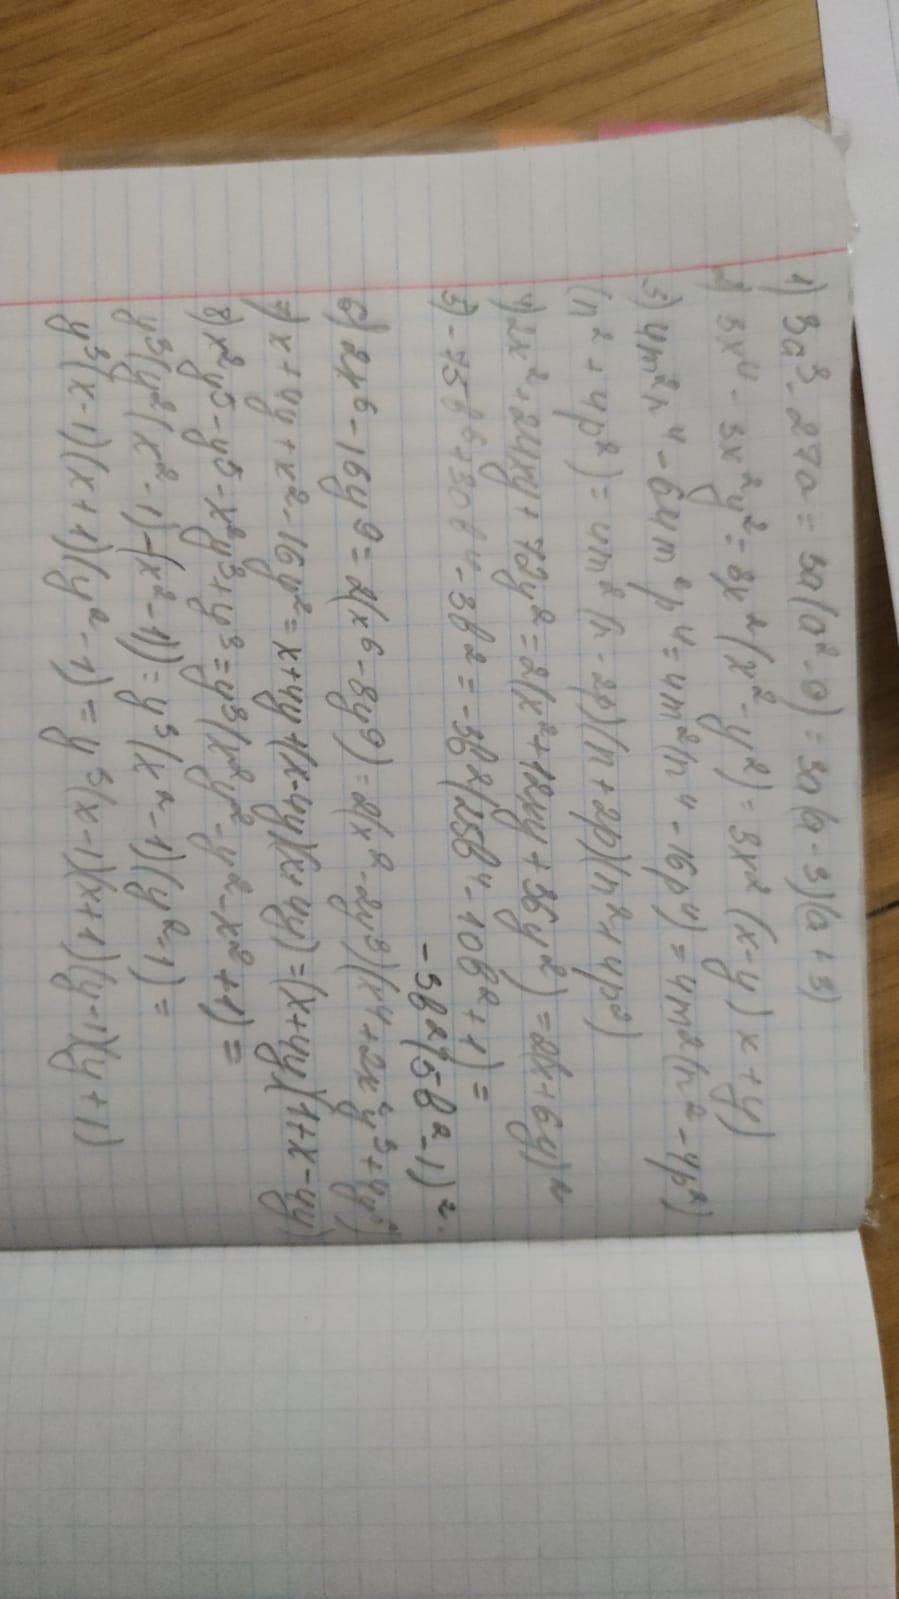 1) 3a³ - 27a = 3a(a² - 9) = 3a(a - 3)(a + 3)
2) 3x⁴ - 3x²y² = 3x²(x² - y²) = 3x²(x - y)x + y)
3) 4m²n⁴ - 64m²p⁴ = 4m²(n⁴ - 16p⁴) = 4m²(n² - 4p²)
(n² + 4p²) = 4m²(n - 2p)(n + 2p)(n² + 4p²)
4) 2x² + 24xy + 72y² = 2(x² + 12xy + 36y²) = 2(x + 6y)²
5) -75b⁶ + 30b⁴ - 3b² = -3b²(25b⁴ - 10b² + 1) =
-3b²(5b² - 1)².
6) 2x⁶ - 16y⁹ = 2(x⁶ - 8y⁹) = 2(x² - 2y³)(x⁴ + 2x²y³ + 4y⁶)
7) x + 4y + x² - 16y² = x + 4y + (x - 4y)(x + 4y) = (x + 4y)(1 + x - 4y)
8) x²y⁵ - y⁵ - x²y³ + y³ = y³(x²y² - y² - x² + 1) =
y³(y²(x² - 1) - (x² - 1)) = y³(x² - 1)(y² - 1) =
y³(x - 1)(x + 1)(y² - 1) = y³(x - 1)(x + 1)(y - 1)(y + 1)